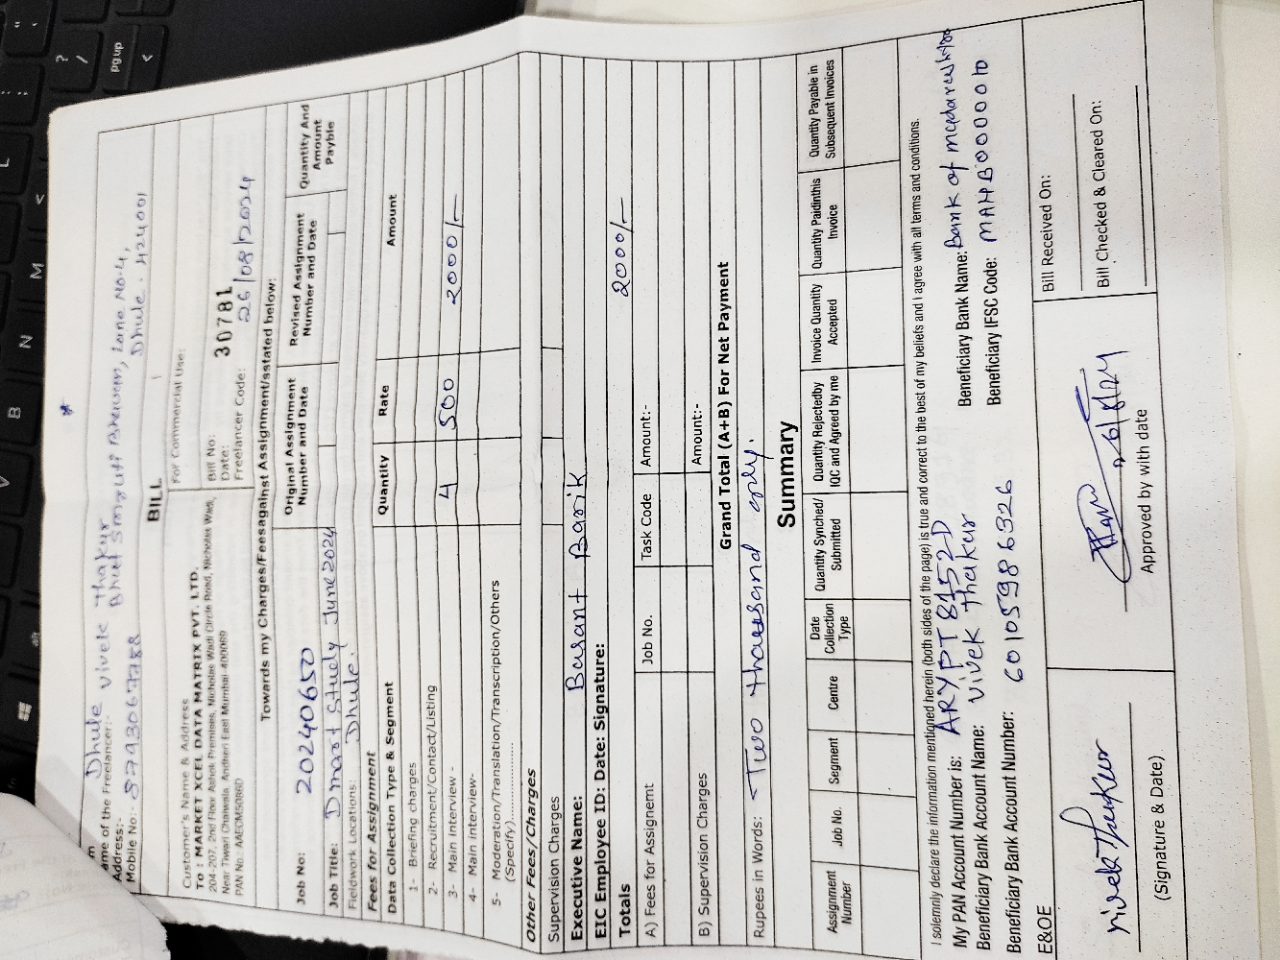 Dhule Vivek Thakur
ame of the Freelancer:-
Address:- Bhut Smruti Bhavan, Lane No-4,
Dhule. 424001
Mobile No:-
BILL
Customer's Name & Address
For Commercial Use:
To : MARKET XCEL DATA MATRIX PVT. LTD.
204-207, 2nd Floor Ashok Premises, Nicholas Wadi Circle Road, Nicholas Wadi,
Near Tiwari Chaiwala, Andheri East Mumbai 400069
PAN No. AAECM5086D
Bill No: 30781
Date: 26/08/2024
Freelancer Code:
Towards my Charges/Feesagainst Assignment/sstated below:
Job No: 20240650
Original Assignment Number and Date
Revised Assignment Number and Date
Quantity And Amount Payble
Job Title: Dmart Study June 2024
Fieldwork Locations: Dhule.
Fees for Assignment
Data Collection Type & Segment Quantity Rate Amount
1- Briefing charges
2- Recruitment/Contact/Listing
3- Main Interview - 4 500 2000/-
4- Main interview-
5- Moderation/Translation/Transcription/Others
(Specify)................
Other Fees/Charges
Supervision Charges
Executive Name: Basant Barik
EIC Employee ID: Date: Signature:
Totals 2000/-
A) Fees for Assigniemt Job No. Task Code Amount:-
B) Supervision Charges Amount:-
Grand Total (A+B) For Net Payment
Rupees in Words: - Two thousand only.
Summary
Assignment Number
Job No.
Segment
Centre
Date Collection Type
Quantity Synched/ Submitted
Quantity Rejectedby IQC and Agreed by me
Invoice Quantity Accepted
Quantity Paidinthis Invoice
Quantity Payable in Subsequent Invoices
I solemnly declare the information mentioned herein (both sides of the page) is true and correct to the best of my beliefs and I agree with all terms and conditions.
My PAN Account Number is: ARYPT8152D
Beneficiary Bank Account Name: Vivek thakur
Beneficiary Bank Name: Bank of
Beneficiary Bank Account Number: 60105986326
Beneficiary IFSC Code: MAHB0000010
E&OE
vivek thakur
(Signature & Date)
26/8/24
Approved by with date
Bill Received On:
Bill Checked & Cleared On:
pg up
V
B
N
M
L